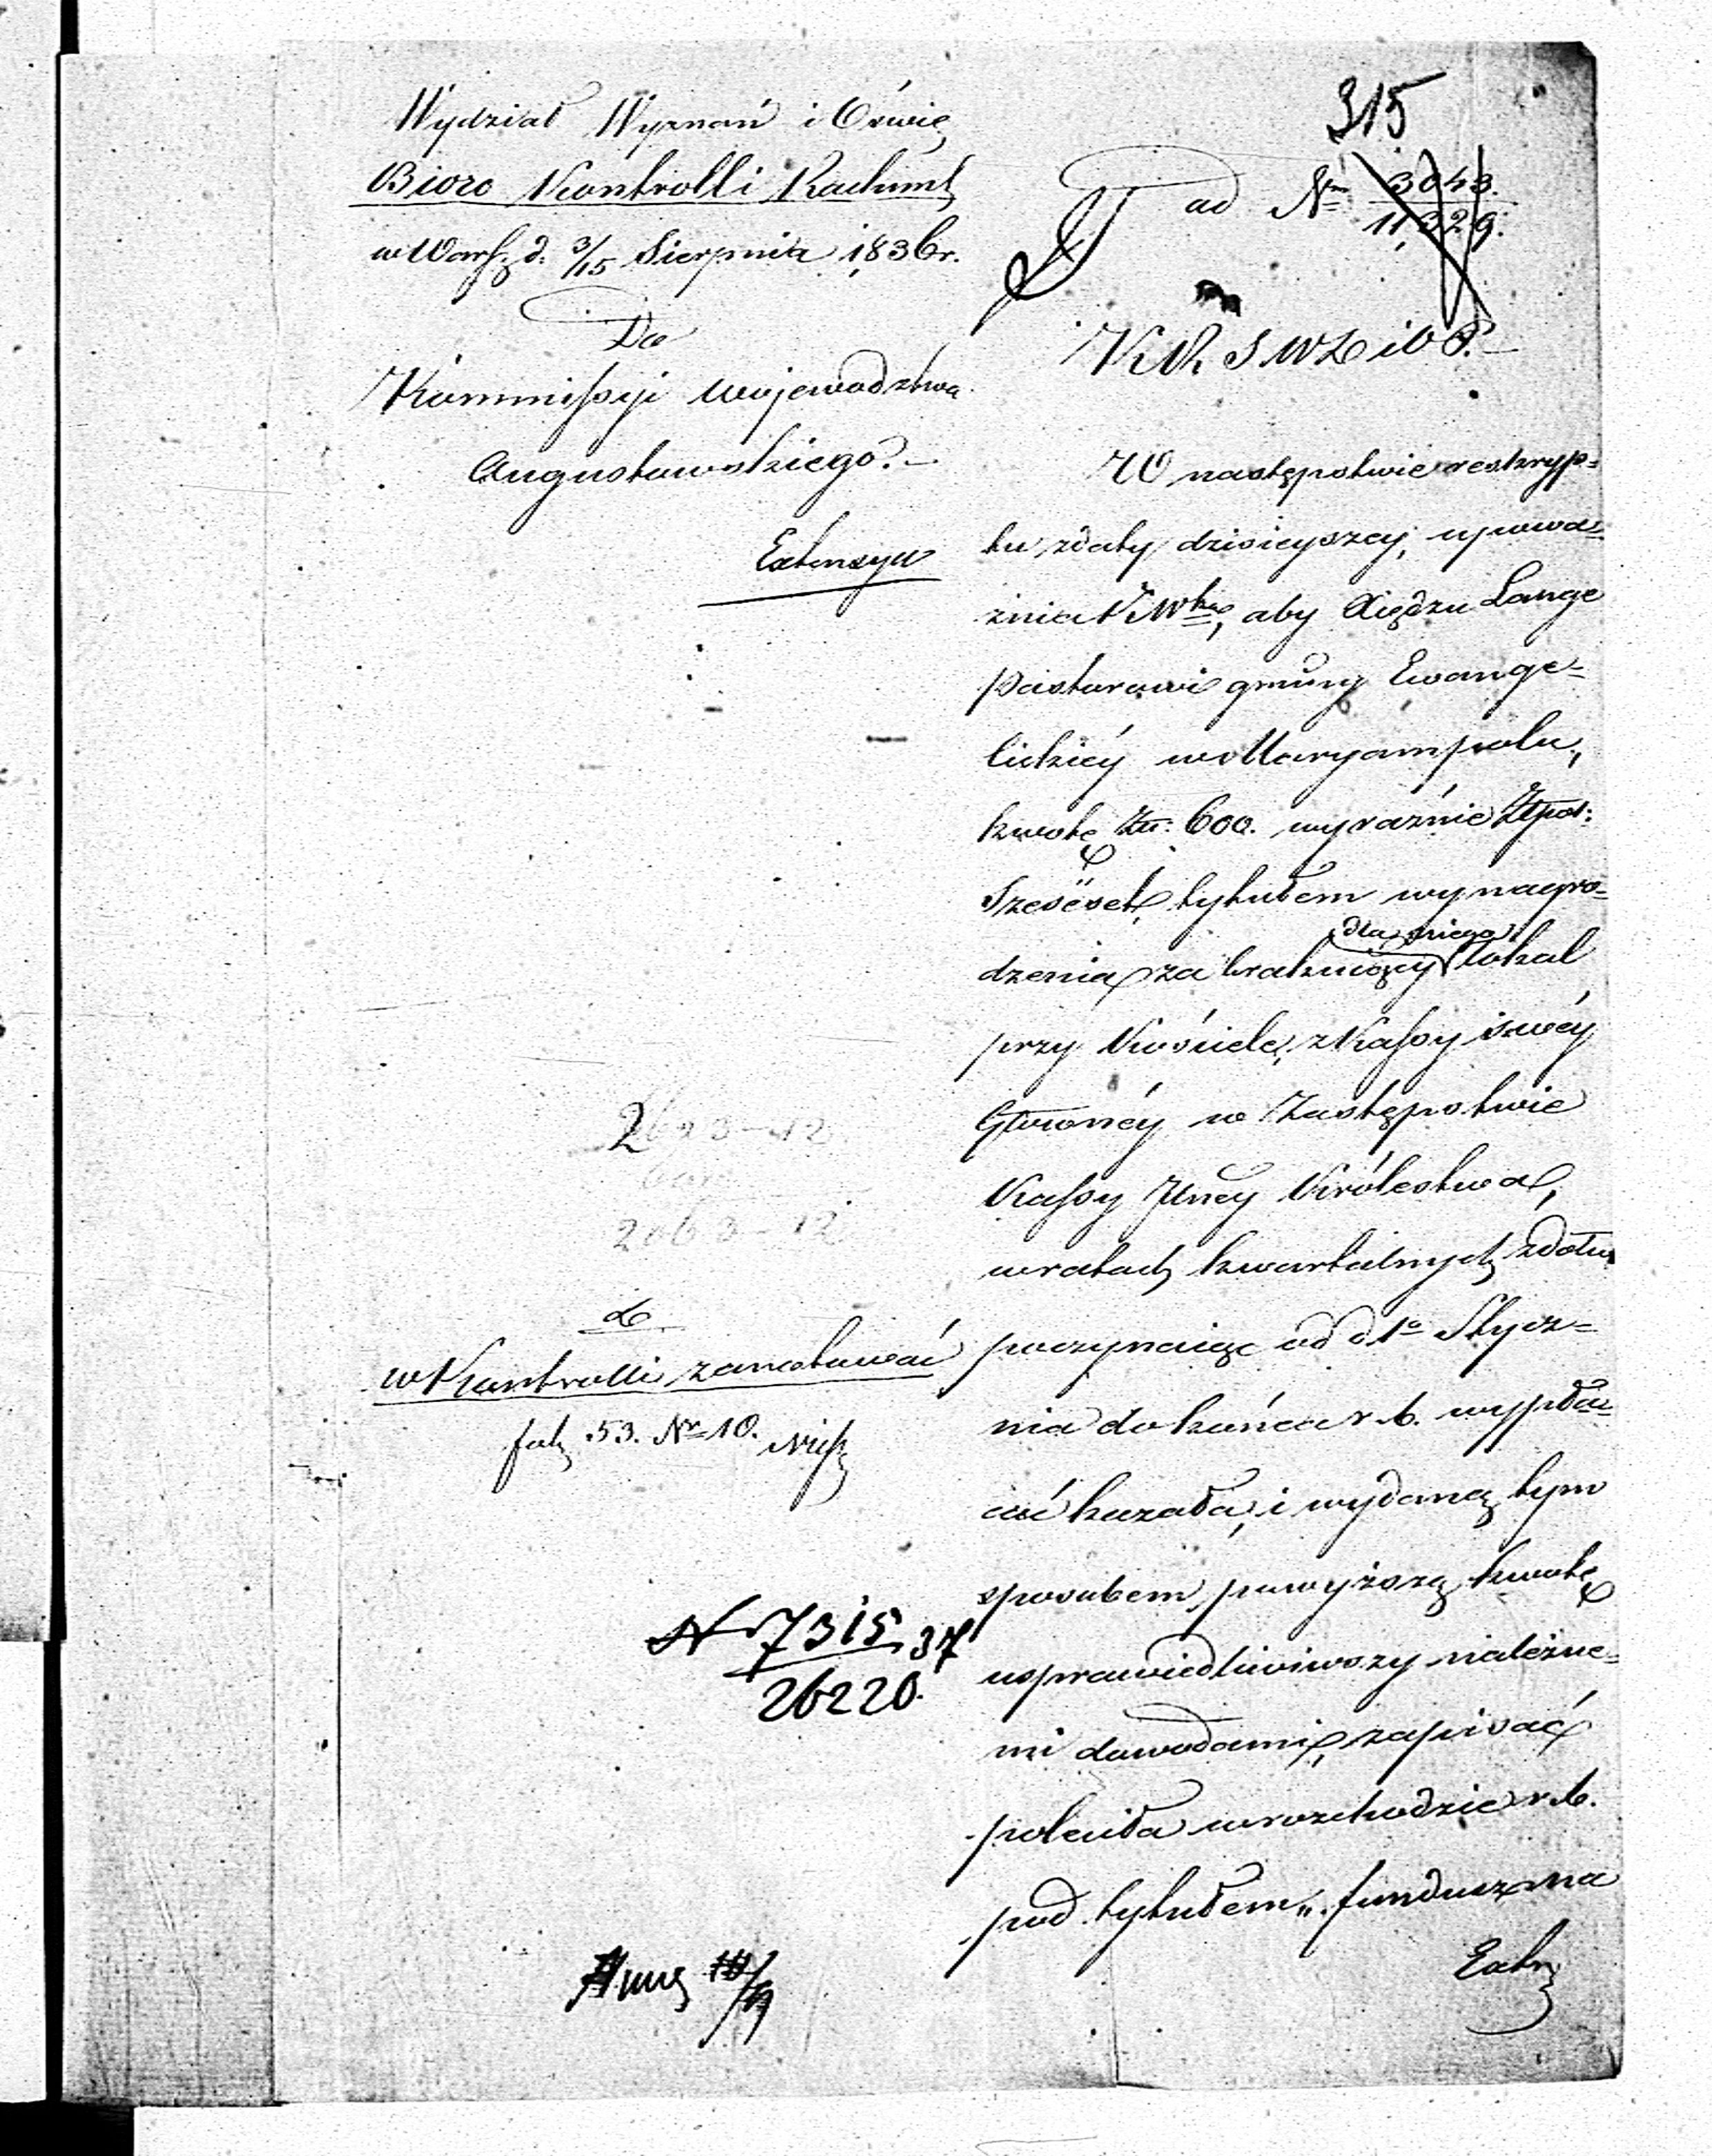 315
Wydział Wyznań i Oświe
Bioro Kontrolli Rachunk
w Warsz d. 3/15 Sierpnia 1836 r.
ad Nrm 3043.
11,329.
Do
Kommissyi Województwa
Augustowskiego.
Extensyu
K R S W D i O P.
W następstwie reskryp=
tu z daty dzisieyszey, upowa=
żnia K Wką, aby Xiędzu Lange
Pastorowi gminy Ewange=
lickiéy w Maryampolu,
kwotę Złt: 600. wyraźnie Złpol:
Sześćset, tytułem wynagro=
dla niego
dzenia za brakuiący lokal
przy Kościele, z Kassy swéy
Główney w Zastępstwie
Kassy Jlnéy Królestwa,
w ratach kwartalnych z dołu
poczynaiąc od d 1o Stycz=
nia do końca r. b. wypła=
cać kazała, i wydaną tym
sposobem powyższą kwotę
usprawiedliwiwszy należne=
mi dowodami, zapisać
poleciła w rozchodzie r. b.
pod tytułem „fundusz na
Extr
2063-12
w Kontrolli zanotować
fol 53. Nr 10.
N 7315 37
26220.